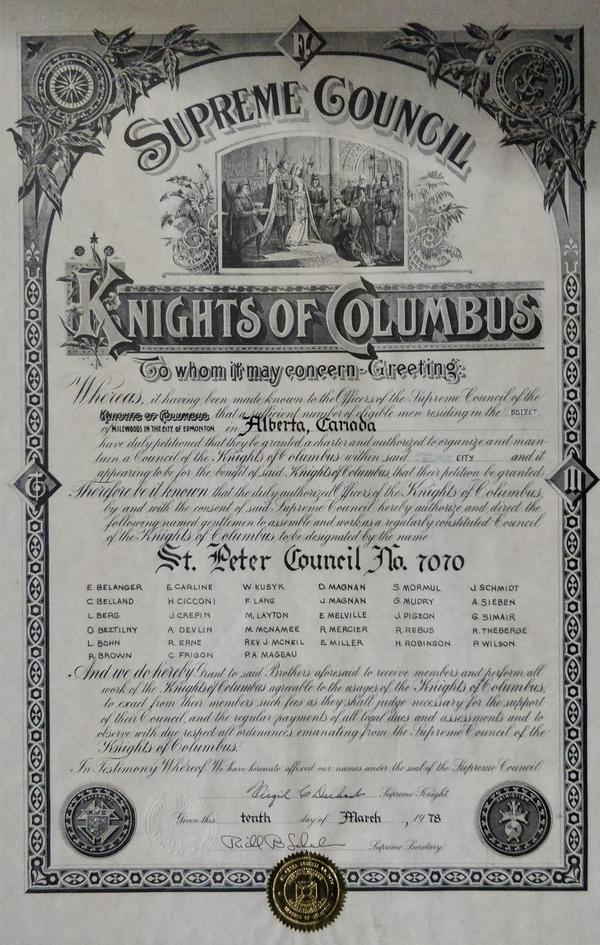 F
SUPREME COUNCIL
KNIGHTS OF COLUMBUS
To whom it may concern - Greeting:
Whereas, it having been made known to the Officers of the Supreme Council of the
KNIGHTS OF COLUMBUS that a sufficient number of eligible men residing in the DISTRICT
of MILLWOODS IN THE CITY OF EDMONTON in Alberta, Canada
have duly petitioned that they be granted a charter and authorized to organize and main
tain a Council of the Knights of Columbus within said CITY and it
appearing to be for the benefit of said Knights of Columbus, that their petition be granted.
Therefore be it known that the duly authorized Officers of the Knights of Columbus,
by and with the consent of said Supreme Council hereby authorize and direct the
following named gentlemen to assemble and work as a regularly constituted Council
of the Knights of Columbus to be designated by the name
St. Peter Council No. 7070
E. BELANGER E. CARLINE W. KUSYK D. MAGNAN S. MORMUL J. SCHMIDT
C. BELLAND H. CICCONI F. LANG J. MAGNAN G. MUDRY A. SIEBEN
L. BERG J. CREPIN M. LAYTON E. MELVILLE J. PIGEON G. SIMAIR
O. BEZTILNY A. DEVLIN M. MCNAMEE R. MERCIER R. REBUS R. THEBERGE
L. BOHN R. ERNE REV. J. MCNEIL E. MILLER H. ROBINSON P. WILSON
P. BROWN C. FRIGON P.A. MAGEAU
And we do hereby Grant to said Brothers aforesaid to receive members and perform all
work of the Knights of Columbus agreeable to the usages of the Knights of Columbus,
to exact from their members such fees as they shall judge necessary for the support
of their Council, and the regular payments of all legal dues and assessments and to
observe with due respect all ordinances emanating from the Supreme Council of the
Knights of Columbus.
In Testimony Whereof We have hereunto affixed our names under the seal of the Supreme Council
Virgil C Dechant Supreme Knight
Given this tenth day of March, 1978
Supreme Secretary
K of C